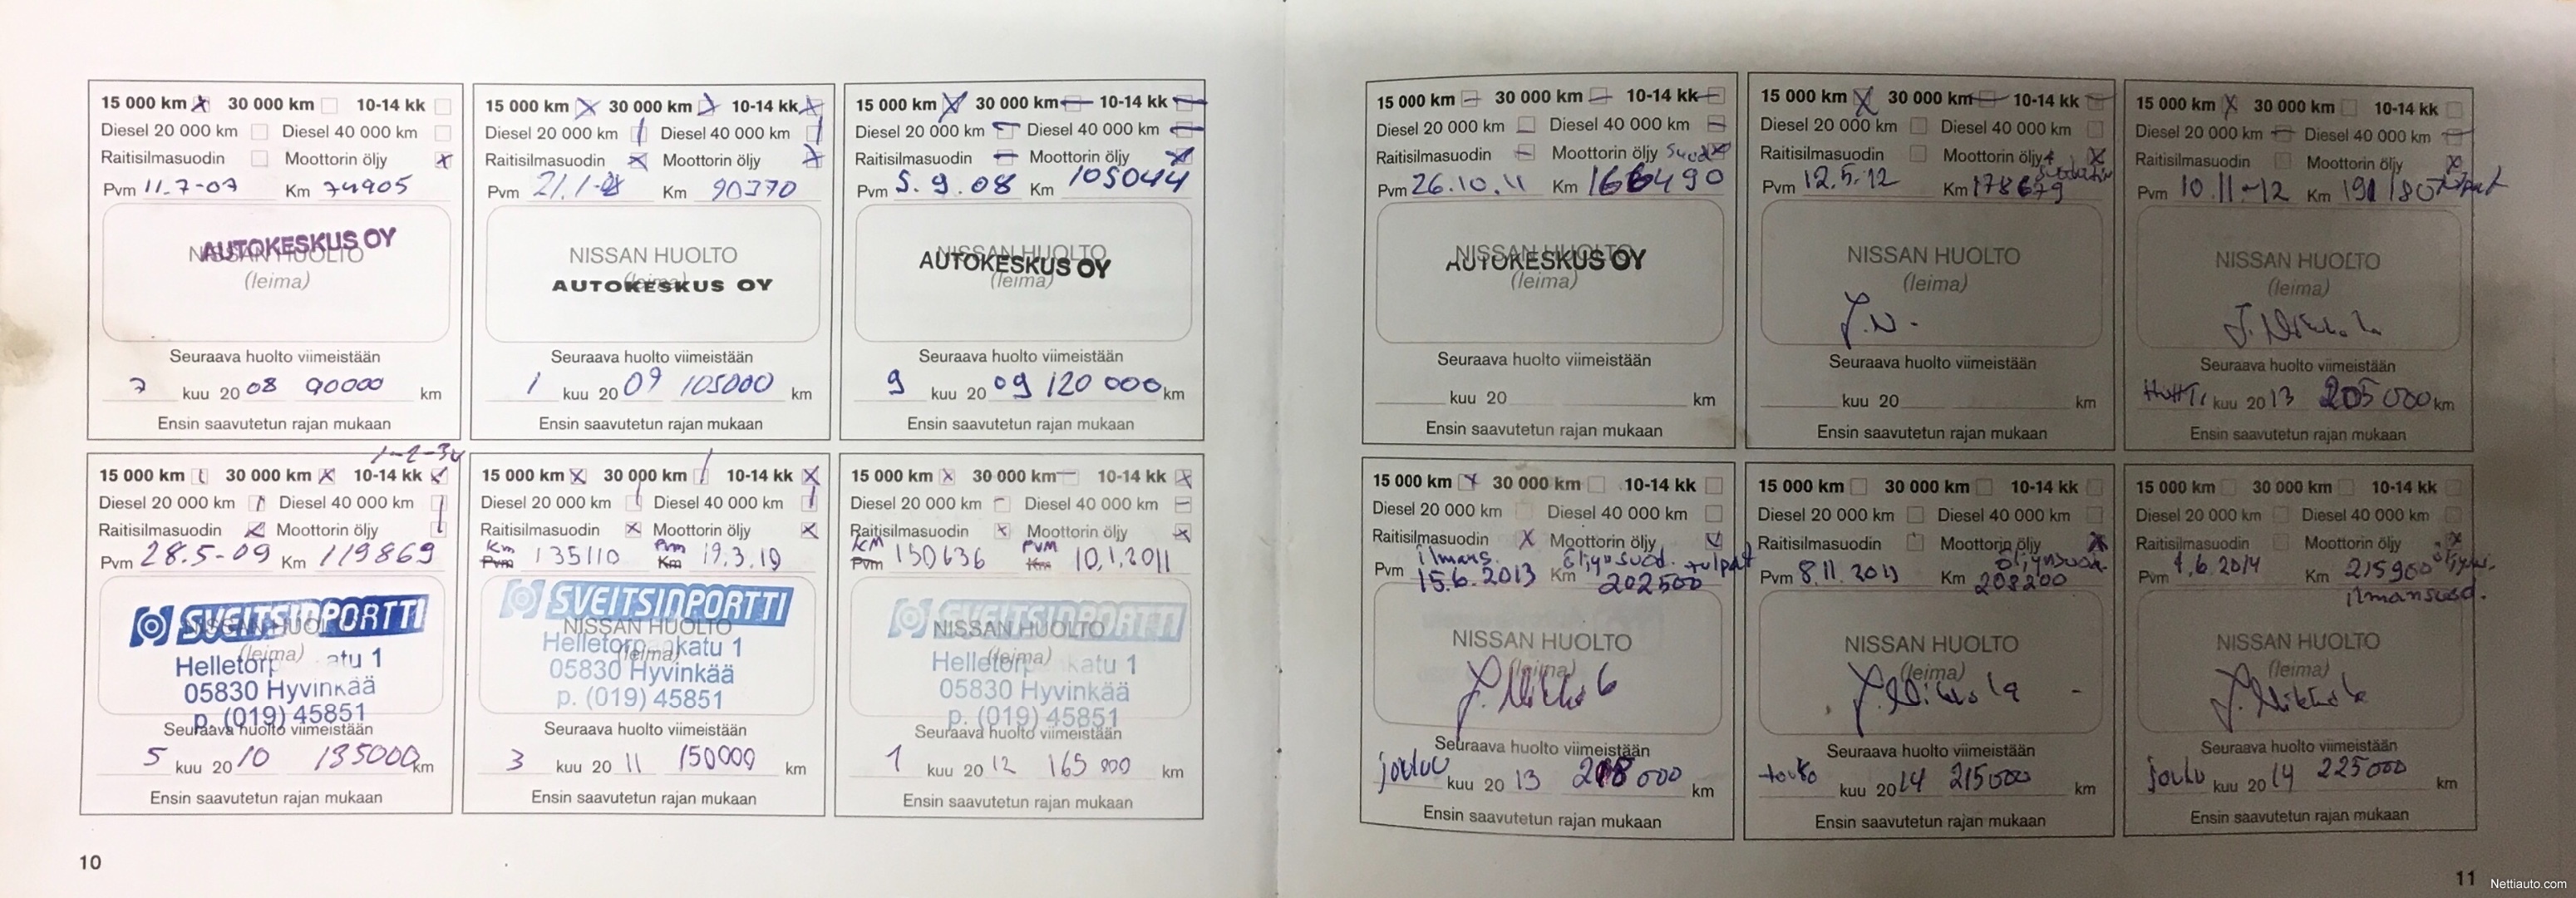 15 000 km 30 000 km 10-14 kk
Diesel 20 000 km Diesel 40 000 km
Raitisilmasuodin Moottorin öljy
Pvm 11.7-07 Km 74905
AUTOKESKUS OY
NISSAN HUOLTO
(leima)
Seuraava huolto viimeistään
7 kuu 20 08 90000 km
Ensin saavutetun rajan mukaan
15 000 km 30 000 km 10-14 kk
Diesel 20 000 km Diesel 40 000 km
Raitisilmasuodin Moottorin öljy
Pvm 21.1-08 Km 90370
NISSAN HUOLTO
(leima)
AUTOKESKUS OY
Seuraava huolto viimeistään
1 kuu 20 09 105000 km
Ensin saavutetun rajan mukaan
15 000 km 30 000 km 10-14 kk
Diesel 20 000 km Diesel 40 000 km
Raitisilmasuodin Moottorin öljy
Pvm 5.9.08 Km 105044
NISSAN HUOLTO
AUTOKESKUS OY
(leima)
Seuraava huolto viimeistään
9 kuu 20 09 120 000 km
Ensin saavutetun rajan mukaan
15 000 km 30 000 km 10-14 kk
Diesel 20 000 km Diesel 40 000 km
Raitisilmasuodin Moottorin öljy
Pvm 28.5-09 Km 119869
SVEITSINPORTTI
NISSAN HUOLTO
(leima)
05830 Hyvinkää
p. (019) 45851
Seuraava huolto viimeistään
5 kuu 20 10 135000 km
Ensin saavutetun rajan mukaan
15 000 km 30 000 km 10-14 kk
Diesel 20 000 km Diesel 40 000 km
Raitisilmasuodin Moottorin öljy
Km Pvm
Pvm 135110 Km 19.3.10
SVEITSINPORTTI
NISSAN HUOLTO
(leima) katu 1
05830 Hyvinkää
p. (019) 45851
Seuraava huolto viimeistään
3 kuu 20 11 150000 km
Ensin saavutetun rajan mukaan
15 000 km 30 000 km 10-14 kk
Diesel 20 000 km Diesel 40 000 km
Raitisilmasuodin Moottorin öljy
KM PVM
Pvm 150636 Km 10.1.2011
SVEITSINPORTTI
NISSAN HUOLTO
(leima) katu 1
05830 Hyvinkää
p. (019) 45851
Seuraava huolto viimeistään
1 kuu 20 12 165 000 km
Ensin saavutetun rajan mukaan
10
15 000 km 30 000 km 10-14 kk
Diesel 20 000 km Diesel 40 000 km
Raitisilmasuodin Moottorin öljy Suod
Pvm 26.10.11 Km 166490
NISSAN HUOLTO
AUTOKESKUS OY
(leima)
Seuraava huolto viimeistään
kuu 20 km
Ensin saavutetun rajan mukaan
15 000 km 30 000 km 10-14 kk
Diesel 20 000 km Diesel 40 000 km
Raitisilmasuodin Moottorin öljy +
Pvm 12.5.12 Km 178679
NISSAN HUOLTO
(leima)
J.N.
Seuraava huolto viimeistään
kuu 20 km
Ensin saavutetun rajan mukaan
15 000 km 30 000 km 10-14 kk
Diesel 20 000 km Diesel 40 000 km
Raitisilmasuodin Moottorin öljy
Pvm 10.11-12 Km 191180 tulpat
NISSAN HUOLTO
(leima)
J. Nikkola
Seuraava huolto viimeistään
Huhti kuu 20 13 205 000 km
Ensin saavutetun rajan mukaan
15 000 km 30 000 km 10-14 kk
Diesel 20 000 km Diesel 40 000 km
Raitisilmasuodin Moottorin öljy
ilmans. öljynsuod. tulpat
Pvm 15.6.2013 Km 202500
NISSAN HUOLTO
(leima)
J. Nikkola
Seuraava huolto viimeistään
joulu kuu 20 13 218 000 km
Ensin saavutetun rajan mukaan
15 000 km 30 000 km 10-14 kk
Diesel 20 000 km Diesel 40 000 km
Raitisilmasuodin Moottorin öljy
öljynsuod.
Pvm 8.11.2013 Km 208200
NISSAN HUOLTO
(leima)
J. Nikkola
Seuraava huolto viimeistään
touko kuu 20 14 215000 km
Ensin saavutetun rajan mukaan
15 000 km 30 000 km 10-14 kk
Diesel 20 000 km Diesel 40 000 km
Raitisilmasuodin Moottorin öljy
Pvm 1.6.2014 Km 215900
ilmansuod.
NISSAN HUOLTO
(leima)
J. Nikkola
Seuraava huolto viimeistään
joulu kuu 20 14 225 000 km
Ensin saavutetun rajan mukaan
11
Nettiauto.com